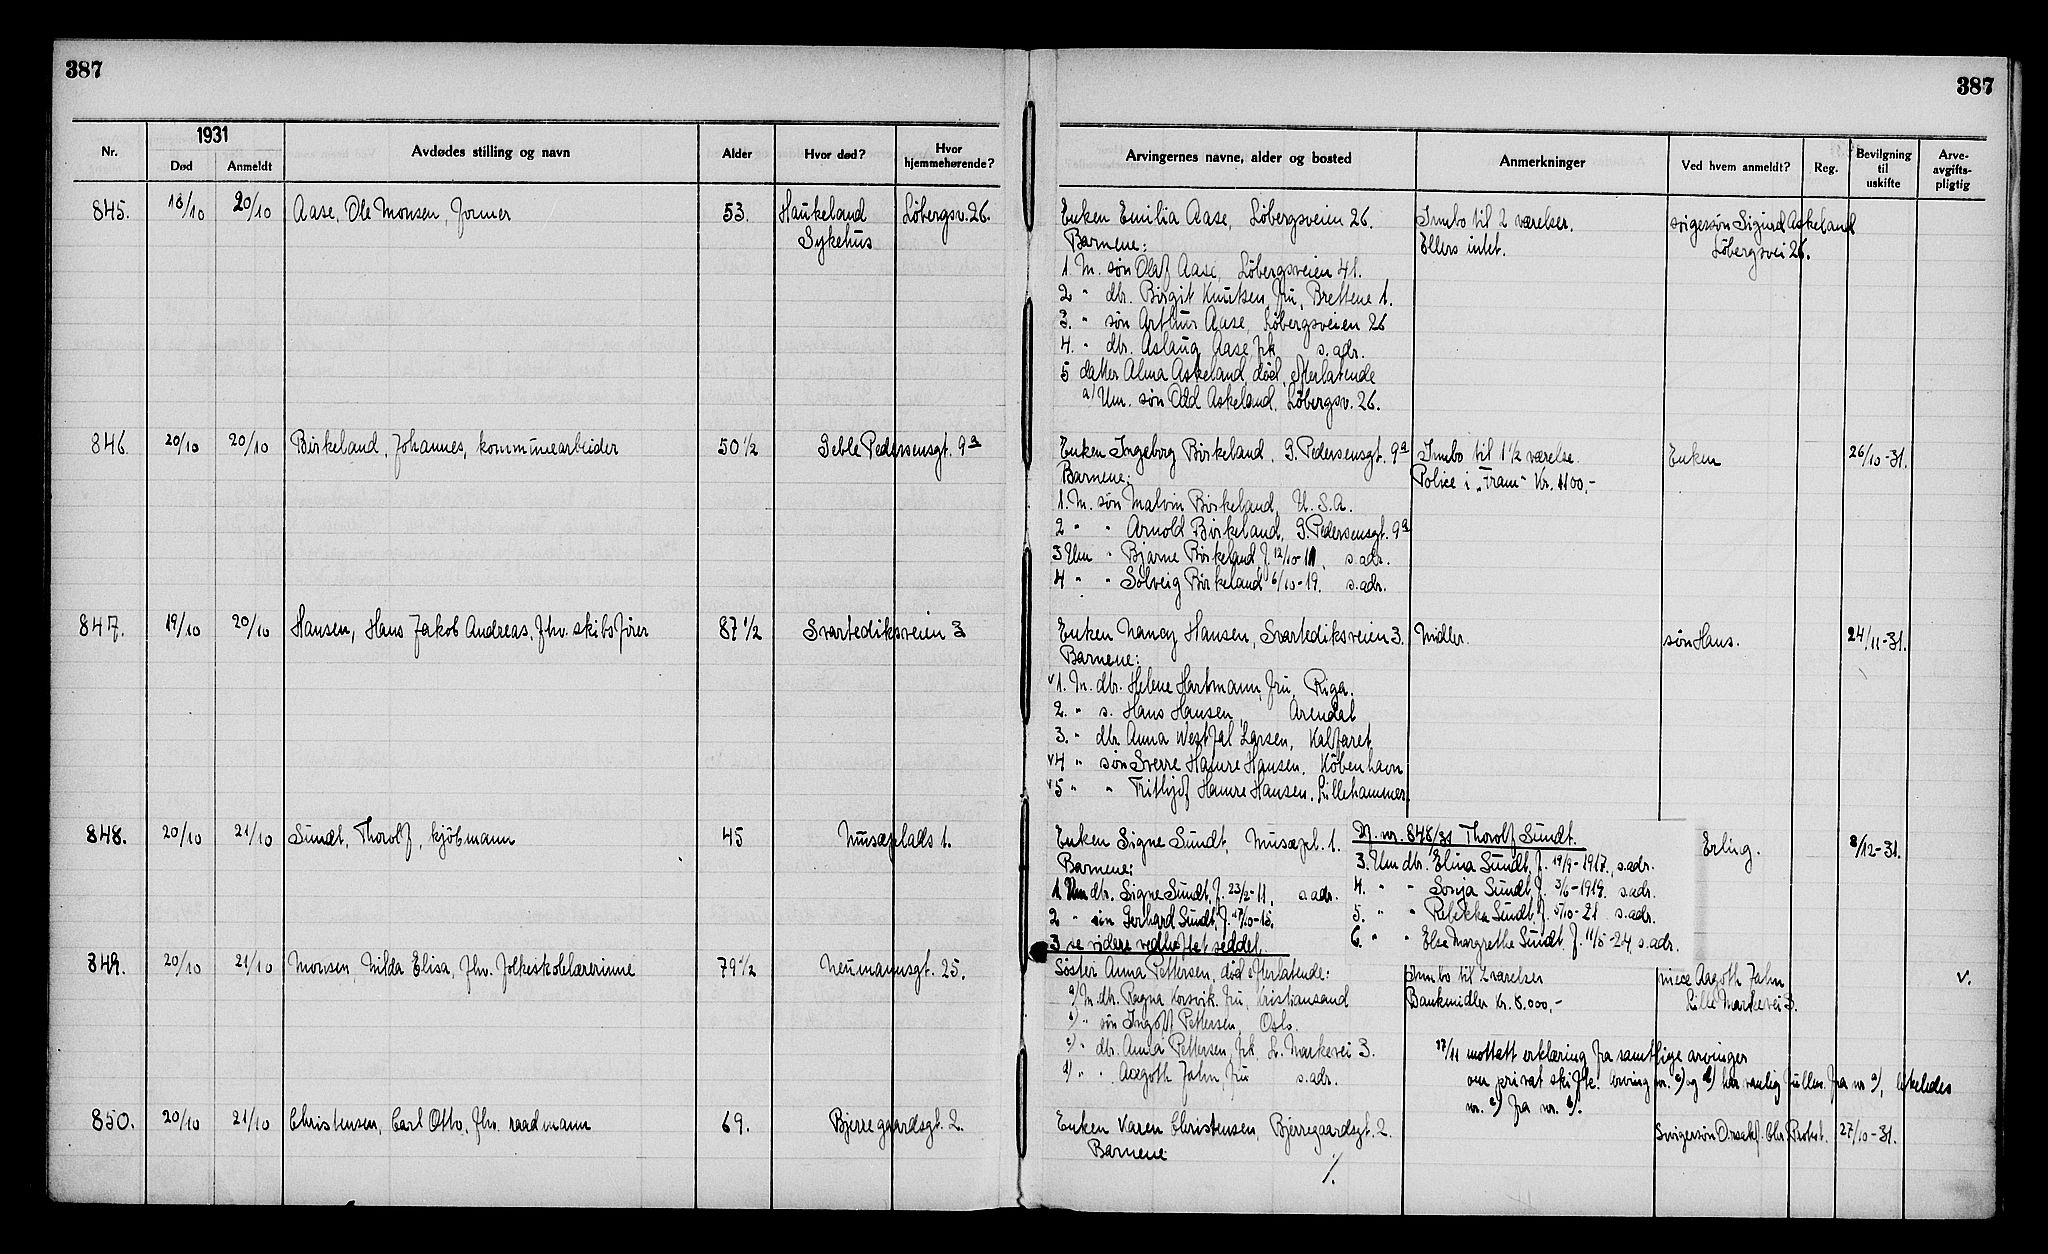 387
387
Nr.
1931
Død
Anmeldt
Avdødes stilling og navn
Alder
Hvor død?
Hvor hjemmehørende?
Arvingernes navne, alder og bosted
Anmerkninger
Ved hvem anmeldt?
Reg.
Bevilgning til uskifte
Arve-avgifts-pligtig
845. 18/10 20/10 Aase, Ole Monsen, former 53. Haukeland Løbergsv. 26.
Sykehus
Enken Emilia Aase, Löbergsveien 26. Innbo til 2 værelser. svigersøn Sigurd Askeland
Barnene: Ellers intet. Löbergsvei 26.
1 M. søn Olaf Aase, Löbergsveien 41.
2 " dtr. Birgit Knutsen, fru, Brettene 1.
3. " søn Arthur Aase, Löbergsveien 26
4. " dtr. Aslaug Aase frk s. adr.
5 datter Alma Askeland, død, efterlatende
a/ Um. søn Odd Askeland, Löbergsv. 26.
846. 20/10 20/10 Birkeland, Johannes, kommunearbeider 50 1/2 Geble Pedersensgt. 9a
Enken Ingeborg Birkeland, G. Pedersensgt. 9a Innbo til 1 1/2 værelse. Enken 26/10-31.
Barnene: Police i „Fram" Kr. 1100,-
1. M. søn Malvin Birkeland, U.S.A.
2 " " Arnold Birkeland, G. Pedersensgt. 9a
3 Um " Bjarne Birkeland f. 12/10-11, s. adr.
4 " " Solveig Birkeland 6/10-19. s. adr.
847. 19/10 20/10 Hansen, Hans Jakob Andreas, fhv. skibsfører 87 1/2 Svartediksveien 3
Enken Nancy Hansen, Svartediksveien 3. Midler. søn Hans. 24/11-31.
Barnene:
v 1. M. dtr. Helene Hartmann, fru, Riga.
2. " s. Hans Hansen, Arendal
3. " dtr. Anna Westfal Larsen, Kalfaret
v 4 " søn Sverre Hamre Hansen. København
v 5 " " Frithjof Hamre Hansen, Lillehammer.
848. 20/10 21/10 Sundt, Thorolf, kjøbmann 45 Musæplads 1.
Enken Signe Sundt, Musæpl. 1. Erling. 8/12-31.
Barnene:
1 Um dtr. Signe Sundt, f. 23/2-11, s. adr.
2 " søn Gerhard Sundt, f. 17/10-15.
3 se videre vedheftet seddel.
Df. nr. 848/31 Thorolf Sundt.
3. Um dtr. Elina Sundt, f. 19/9-1917, s. adr.
4. " " Sonja Sundt f. 3/6-1919. s. adr.
5. " " Rebekka Sundt f. 5/10-21 s. adr.
6. " " Else Margrethe Sundt, f. 11/5-24, s. adr.
849. 20/10 21/10 Monsen, Hilda Elisa, fhv. folkeskolelærerinne 79 1/2 Neumannsgt. 25.
Søster Anna Pettersen, død efterlatende: Innbo til 2 værelser niece Aagoth Jahn v.
a) M. dtr. Ragna Korsvik, fru, Kristiansand Bankmidler kr. 8.000,- Lille Markevei 3.
b) " søn Ingolf Pettersen, Oslo.
c) " dtr. Anna Pettersen, frk, L. Markevei 3.
d) " " Aagoth Jahn, fru s. adr.
17/11 mottatt erklæring fra samtlige arvinger
om privat skifte. Arving nr. c) og d) har vanlig fullm. fra nr a), likeledes
nr. c) fra nr. b).
850. 20/10 21/10 Christensen, Carl Otto, fhv. raadmann 69. Bjerregaardsgt. 2.
Enken Karen Christensen, Bjerregaardsgt. 2. Svigersøn 27/10-31.
Barnene
%.